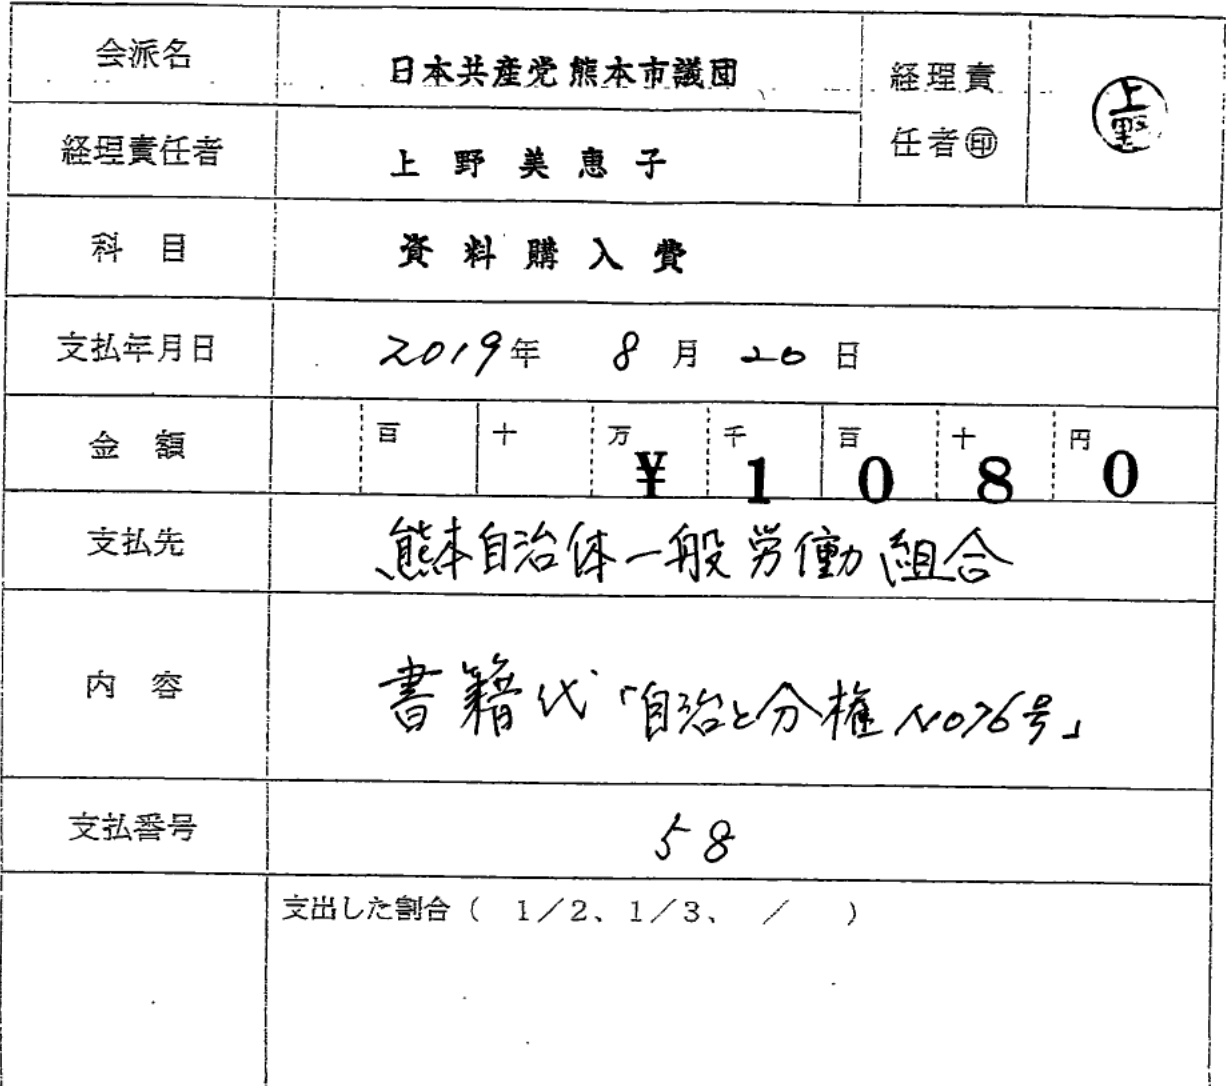 会派名 日本共産党熊本市議団 経理責任者㊞ 上野
経理責任者 上野美恵子
科目 資料購入費
支払年月日 2019年 8月 20日
金額 百 十 万 千 百 十 円 ¥1080
支払先 熊本自治体一般労働組合
内容 書籍代「自治と分権 No76号」
支払番号 58
支出した割合（ 1／2、1／3、 ／ ）